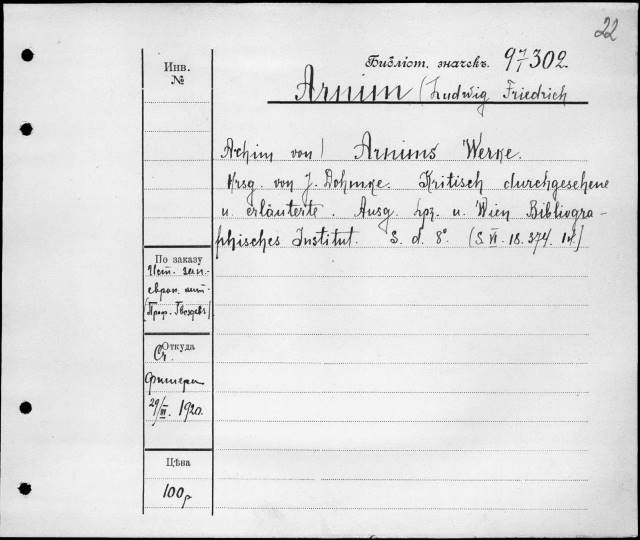 22
Библіот. значекъ. 97/302.
Инв.
№
Arnim (Ludwig Friedrich
Achim von) Arnims Werke.
Hrsg. von J. Dohmke. Kritisch durchgesehene
u. erläuterte. Ausg. Lpz. u. Wien Bibliogra-
phisches Institut. S. d. 8° (S. VI. 18. 374.
По заказу
Ист. зап.-
европ. лит.
(Проф. Гвоздевъ)
Откуда
От
Фишера
29/III. 1920.
Цѣна
100р